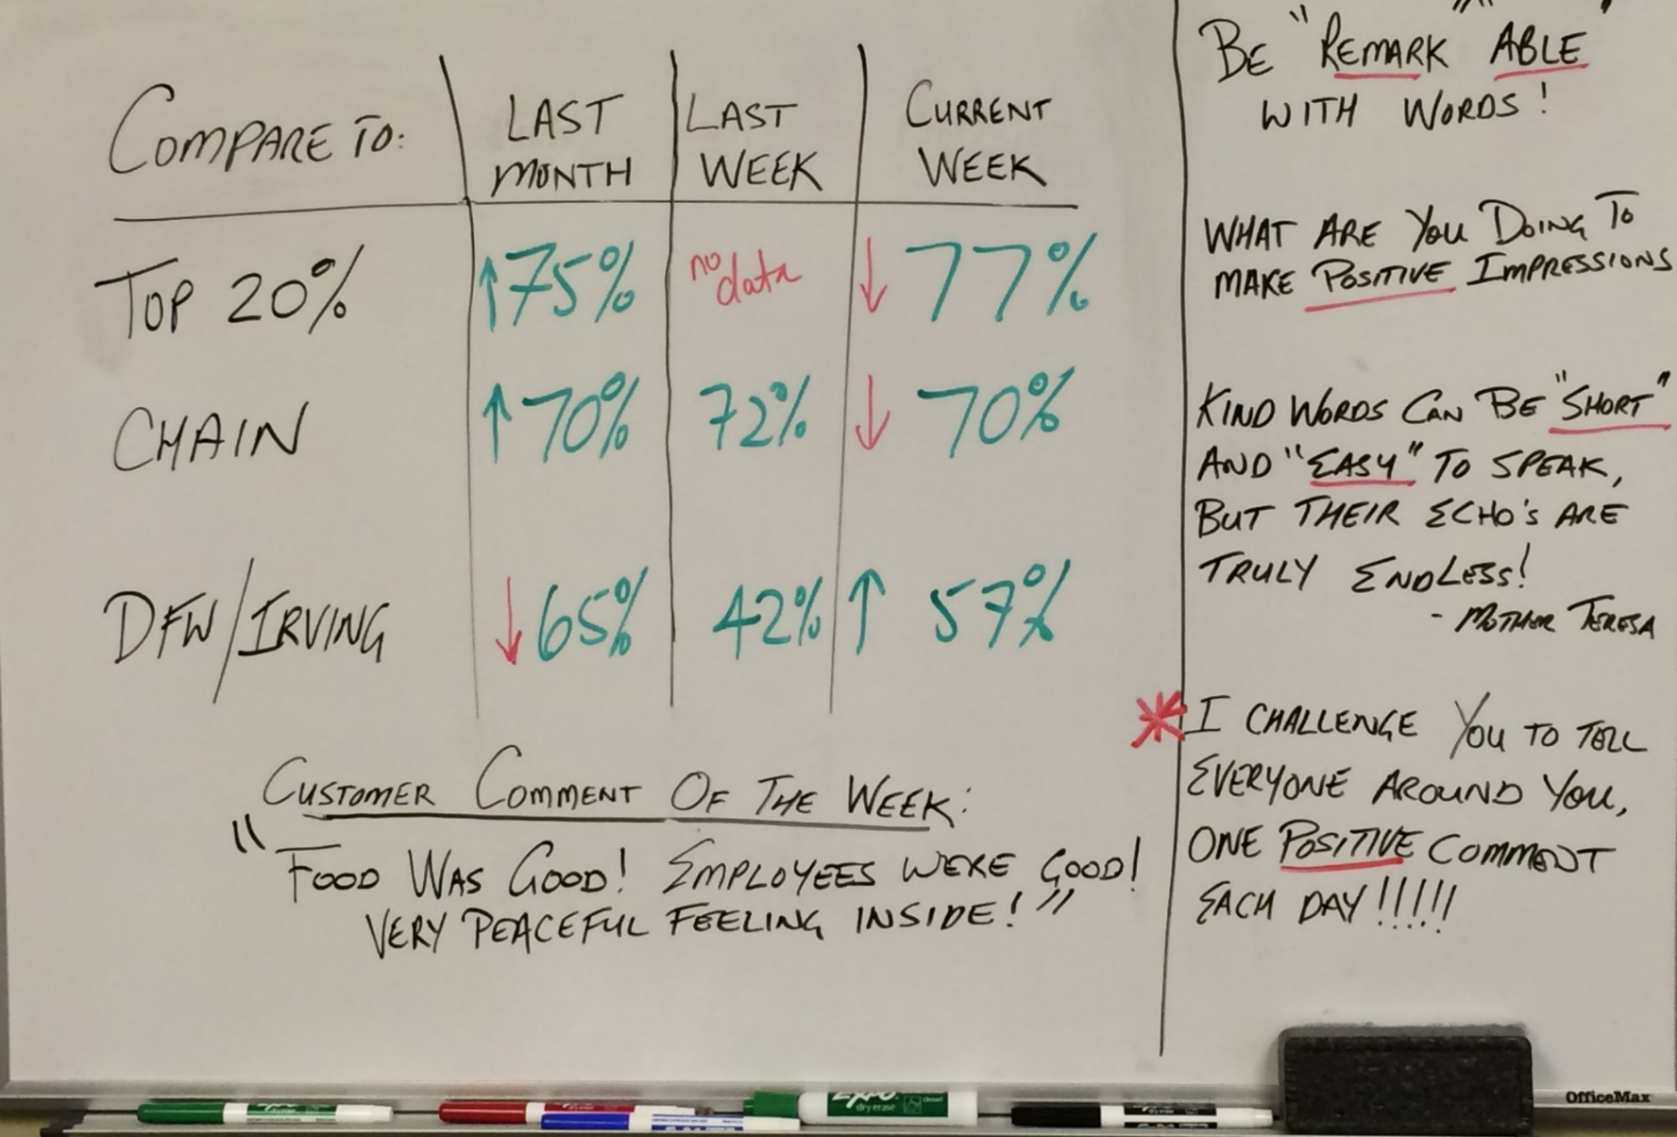 COMPARE TO:
LAST MONTH
LAST WEEK
CURRENT WEEK
TOP 20%
↑75%
no data
↓ 77%
CHAIN
↑70%
72%
↓ 70%
DFW/IRVING
↓65%
42%
↑ 57%
CUSTOMER COMMENT OF THE WEEK:
"FOOD WAS GOOD! EMPLOYEES WERE GOOD!
VERY PEACEFUL FEELING INSIDE!"
BE "REMARK" ABLE
WITH WORDS!
WHAT ARE YOU DOING TO
MAKE POSITIVE IMPRESSIONS
KIND WORDS CAN BE "SHORT"
AND "EASY" TO SPEAK,
BUT THEIR ECHO'S ARE
TRULY ENDLESS!
- MOTHER TERESA
* I CHALLENGE YOU TO TELL
EVERYONE AROUND YOU,
ONE POSITIVE COMMENT
EACH DAY!!!!!
EXPO
dry erase
OfficeMax